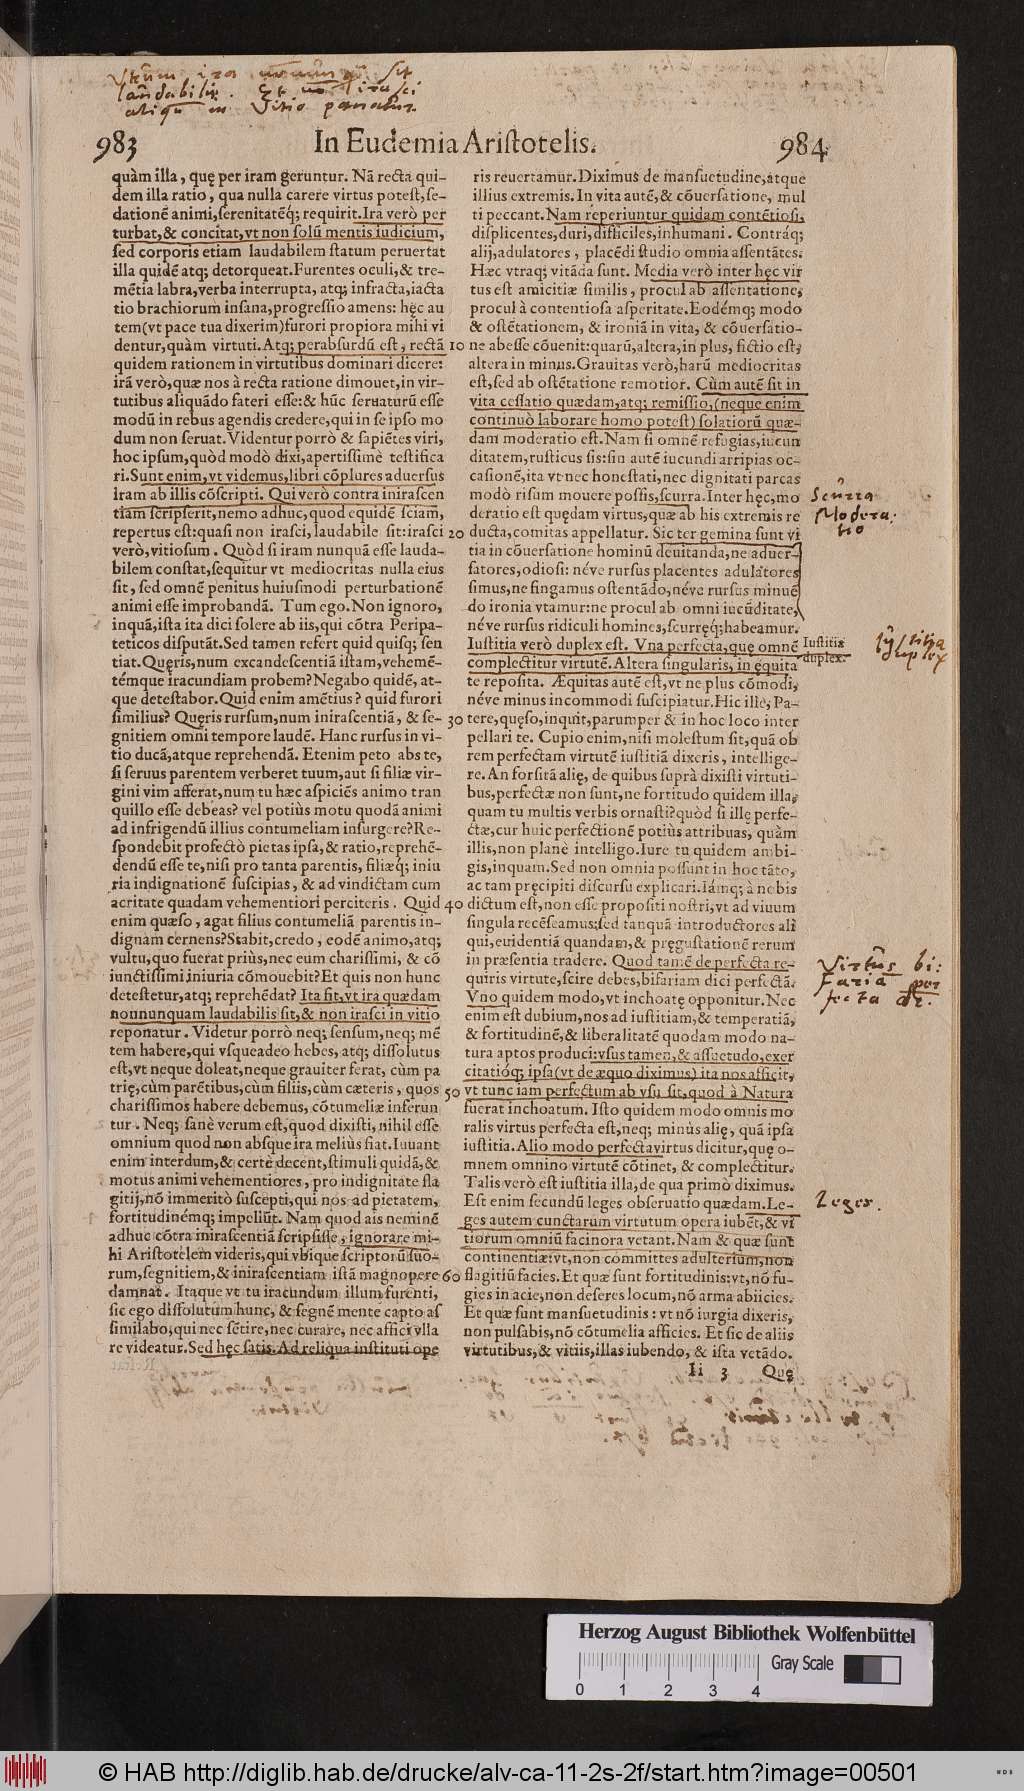 Utrum ira nonnunquam sit
laudabilis. Et non irasci
aliquando in vitio ponatur.
983
In Eudemia Ariſtotelis.
984
quàm illa, quę per iram geruntur. Nã recta qui-
dem illa ratio, qua nulla carere virtus poteſt, ſe-
dationẽ animi, ſerenitatẽq́; requirit. Ira verò per
turbat, & concitat, vt non ſolũ mentis iudicium,
ſed corporis etiam laudabilem ſtatum peruertat
illa quidẽ atq; detorqueat. Furentes oculi, & tre-
mẽtia labra, verba interrupta, atq; infracta, iacta
tio brachiorum inſana, progreſſio amens: hęc au
tem (vt pace tua dixerim) furori propiora mihi vi
dentur, quàm virtuti. Atq; perabſurdũ eſt, rectã
quidem rationem in virtutibus dominari dicere:
irã verò, quæ nos à recta ratione dimouet, in vir-
tutibus aliquãdo fateri eſſe: & hũc ſeruaturũ eſſe
modũ in rebus agendis credere, qui in ſe ipſo mo
dum non ſeruat. Videntur porrò & ſapiẽtes viri,
hoc ipſum, quòd modò dixi, apertiſſimè teſtifica
ri. Sunt enim, vt videmus, libri cõplures aduerſus
iram ab illis cõſcripti. Qui verò contra iniraſcen
tiam ſcripſerit, nemo adhuc, quod equidẽ ſciam,
repertus eſt: quaſi non iraſci, laudabile ſit: iraſci
verò, vitioſum. Quòd ſi iram nunquã eſſe lauda-
bilem conſtat, ſequitur vt mediocritas nulla eius
ſit, ſed omnẽ penitus huiuſmodi perturbationẽ
animi eſſe improbandã. Tum ego. Non ignoro,
inquã, iſta ita dici ſolere ab iis, qui cõtra Peripa-
teticos diſputãt. Sed tamen refert quid quiſq; ſen
tiat. Quęris, num excandeſcentiã iſtam, vehemẽ-
tẽmque iracundiam probem? Negabo quidẽ, at-
que deteſtabor. Quid enim amẽtius? quid furori
ſimilius? Quęris rurſum, num iniraſcentiã, & ſe-
gnitiem omni tempore laudẽ. Hanc rurſus in vi-
tio ducã, atque reprehendã. Etenim peto abs te,
ſi ſeruus parentem verberet tuum, aut ſi filiæ vir-
gini vim afferat, num tu hæc aſpiciẽs animo tran
quillo eſſe debeas? vel potiùs motu quodã animi
ad infrigendũ illius contumeliam inſurgere? Re-
ſpondebit profectò pietas ipſa, & ratio, reprehẽ-
dendũ eſſe te, niſi pro tanta parentis, filiæq́; iniu
ria indignationẽ ſuſcipias, & ad vindictam cum
acritate quadam vehementiori perciteris. Quid
enim quæſo, agat filius contumeliã parentis in-
dignam cernens? Stabit, credo, eodẽ animo, atq;
vultu, quo fuerat priùs, nec eum chariſſimi, & cõ
iunctiſſimi iniuria cõmouebit? Et quis non hunc
deteſtetur, atq; reprehẽdat? Ita fit, vt ira quædam
nonnunquam laudabilis ſit, & non iraſci in vitio
reponatur. Videtur porrò neq; ſenſum, neq; mẽ
tem habere, qui vſqueadeo hebes, atq; diſſolutus
eſt, vt neque doleat, neque grauiter ferat, cùm pa
trię, cùm parẽtibus, cùm filiis, cùm cæteris, quos
chariſſimos habere debemus, cõtumeliæ inferun
tur. Neq; ſanè verum eſt, quod dixiſti, nihil eſſe
omnium quod non abſque ira meliùs fiat. Iuuant
enim interdum, & certè decent, ſtimuli quidã, &
motus animi vehementiores, pro indignitate fla
gitij, nõ immeritò ſuſcepti, qui nos ad pietatem,
fortitudinẽmq; impellũt. Nam quod ais neminẽ
adhuc cõtra iniraſcentiã ſcripſiſſe, ignorare mi-
hi Ariſtotelem videris, qui vbique ſcriptorũ ſuo-
rum, ſegnitiem, & iniraſcentiam iſtã magnopere
damnat. Itaque vt tu iracundum illum furenti,
ſic ego diſſolutum hunc, & ſegnẽ mente capto aſ
ſimilabo, qui nec ſẽtire, nec curare, nec affici vlla
re videatur. Sed hęc ſatis. Ad reliqua inſtituti ope
10
20
30
40
50
60
ris reuertamur. Diximus de manſuetudine, atque
illius extremis. In vita autẽ, & cõuerſatione, mul
ti peccant. Nam reperiuntur quidam contẽtioſi,
diſplicentes, duri, difficiles, inhumani. Contráq;
alij, adulatores, placẽdi ſtudio omnia aſſentãtes.
Hæc vtraq; vitãda ſunt. Media verò inter hęc vir
tus eſt amicitiæ ſimilis, procul ab aſſentatione,
procul à contentioſa aſperitate. Eodẽmq; modo
& oſtẽtationem, & ironiã in vita, & cõuerſatio-
ne abeſſe cõuenit: quarũ, altera, in plus, fictio eſt,
altera in minus. Grauitas verò, harũ mediocritas
eſt, ſed ab oſtẽtatione remotior. Cùm autẽ ſit in
vita ceſſatio quædam, atq; remiſſio, (neque enim
continuò laborare homo poteſt) ſolatiorũ quæ-
dam moderatio eſt. Nam ſi omnẽ refugias, iucun
ditatem, ruſticus ſis: ſin autẽ iucundi arripias oc-
caſionẽ, ita vt nec honeſtati, nec dignitati parcas
modò riſum mouere poſſis, ſcurra. Inter hęc, mo
deratio eſt quędam virtus, quæ ab his extremis re
ducta, comitas appellatur. Sic ter gemina ſunt vi
tia in cõuerſatione hominũ deuitanda, ne aduer-
ſatores, odioſi: néve rurſus placentes adulatores
ſimus, ne fingamus oſtentãdo, néve rurſus minuẽ
do ironia vtamur: ne procul ab omni iucũditate,
néve rurſus ridiculi homines, ſcurręq; habeamur.
Iuſtitia verò duplex eſt. Vna perfecta, quę omnẽ
complectitur virtutẽ. Altera ſingularis, in ęquita
te repoſita. Æquitas autẽ eſt, vt ne plus cõmodi,
néve minus incommodi ſuſcipiatur. Hic ille, Pa-
tere, quęſo, inquit, parumper & in hoc loco inter
pellari te. Cupio enim, niſi moleſtum ſit, quã ob
rem perfectam virtutẽ iuſtitiã dixeris, intellige-
re. An forſitã alię, de quibus ſuprà dixiſti virtuti-
bus, perfectæ non ſunt, ne fortitudo quidem illa,
quam tu multis verbis ornaſti? quòd ſi illę perfe-
ctæ, cur huic perfectionẽ potiùs attribuas, quàm
illis, non planè intelligo. Iure tu quidem ambi-
gis, inquam. Sed non omnia poſſunt in hoc tãto,
ac tam pręcipiti diſcurſu explicari. Iámq; à nobis
dictum eſt, non eſſe propoſiti noſtri, vt ad viuum
ſingula recẽſeamus: ſed tanquã introductores ali
qui, euidentiã quandam, & pręguſtationẽ rerum
in præſentia tradere. Quod tamẽ de perfecta re-
quiris virtute, ſcire debes, bifariam dici perfectã.
Vno quidem modo, vt inchoatę opponitur. Nec
enim eſt dubium, nos ad iuſtitiam, & temperatiã,
& fortitudinẽ, & liberalitatẽ quodam modo na-
tura aptos produci: vſus tamen, & aſſuetudo, exer
citatióq; ipſa (vt de æquo diximus) ita nos afficit,
vt tunc iam perfectum ab vſu ſit, quod à Natura
fuerat inchoatum. Iſto quidem modo omnis mo
ralis virtus perfecta eſt, neq; minùs alię, quã ipſa
iuſtitia. Alio modo perfecta virtus dicitur, quę o-
mnem omnino virtutẽ cõtinet, & complectitur.
Talis verò eſt iuſtitia illa, de qua primò diximus.
Eſt enim ſecundũ leges obſeruatio quædam. Le-
ges autem cunctarum virtutum opera iubẽt, & vi
tiorum omniũ facinora vetant. Nam & quæ ſunt
continentiæ: vt, non committes adulterium, non
flagitiũ facies. Et quæ ſunt fortitudinis: vt, nõ fu-
gies in acie, non deſeres locum, nõ arma abiicies.
Et quæ ſunt manſuetudinis: vt nõ iurgia dixeris,
non pulſabis, nõ cõtumelia afficies. Et ſic de aliis
virtutibus, & vitiis, illas iubendo, & iſta vetãdo.
Ii 3 Quę
Scurra
Modera-
tio
Iuſtitia
duplex.
Iustitia
duplex
Virtus bi-
faria per
fecta dr.
Leges.
Herzog August Bibliothek Wolfenbüttel
Gray Scale
0 1 2 3 4
© HAB http://diglib.hab.de/drucke/alv-ca-11-2s-2f/start.htm?image=00501